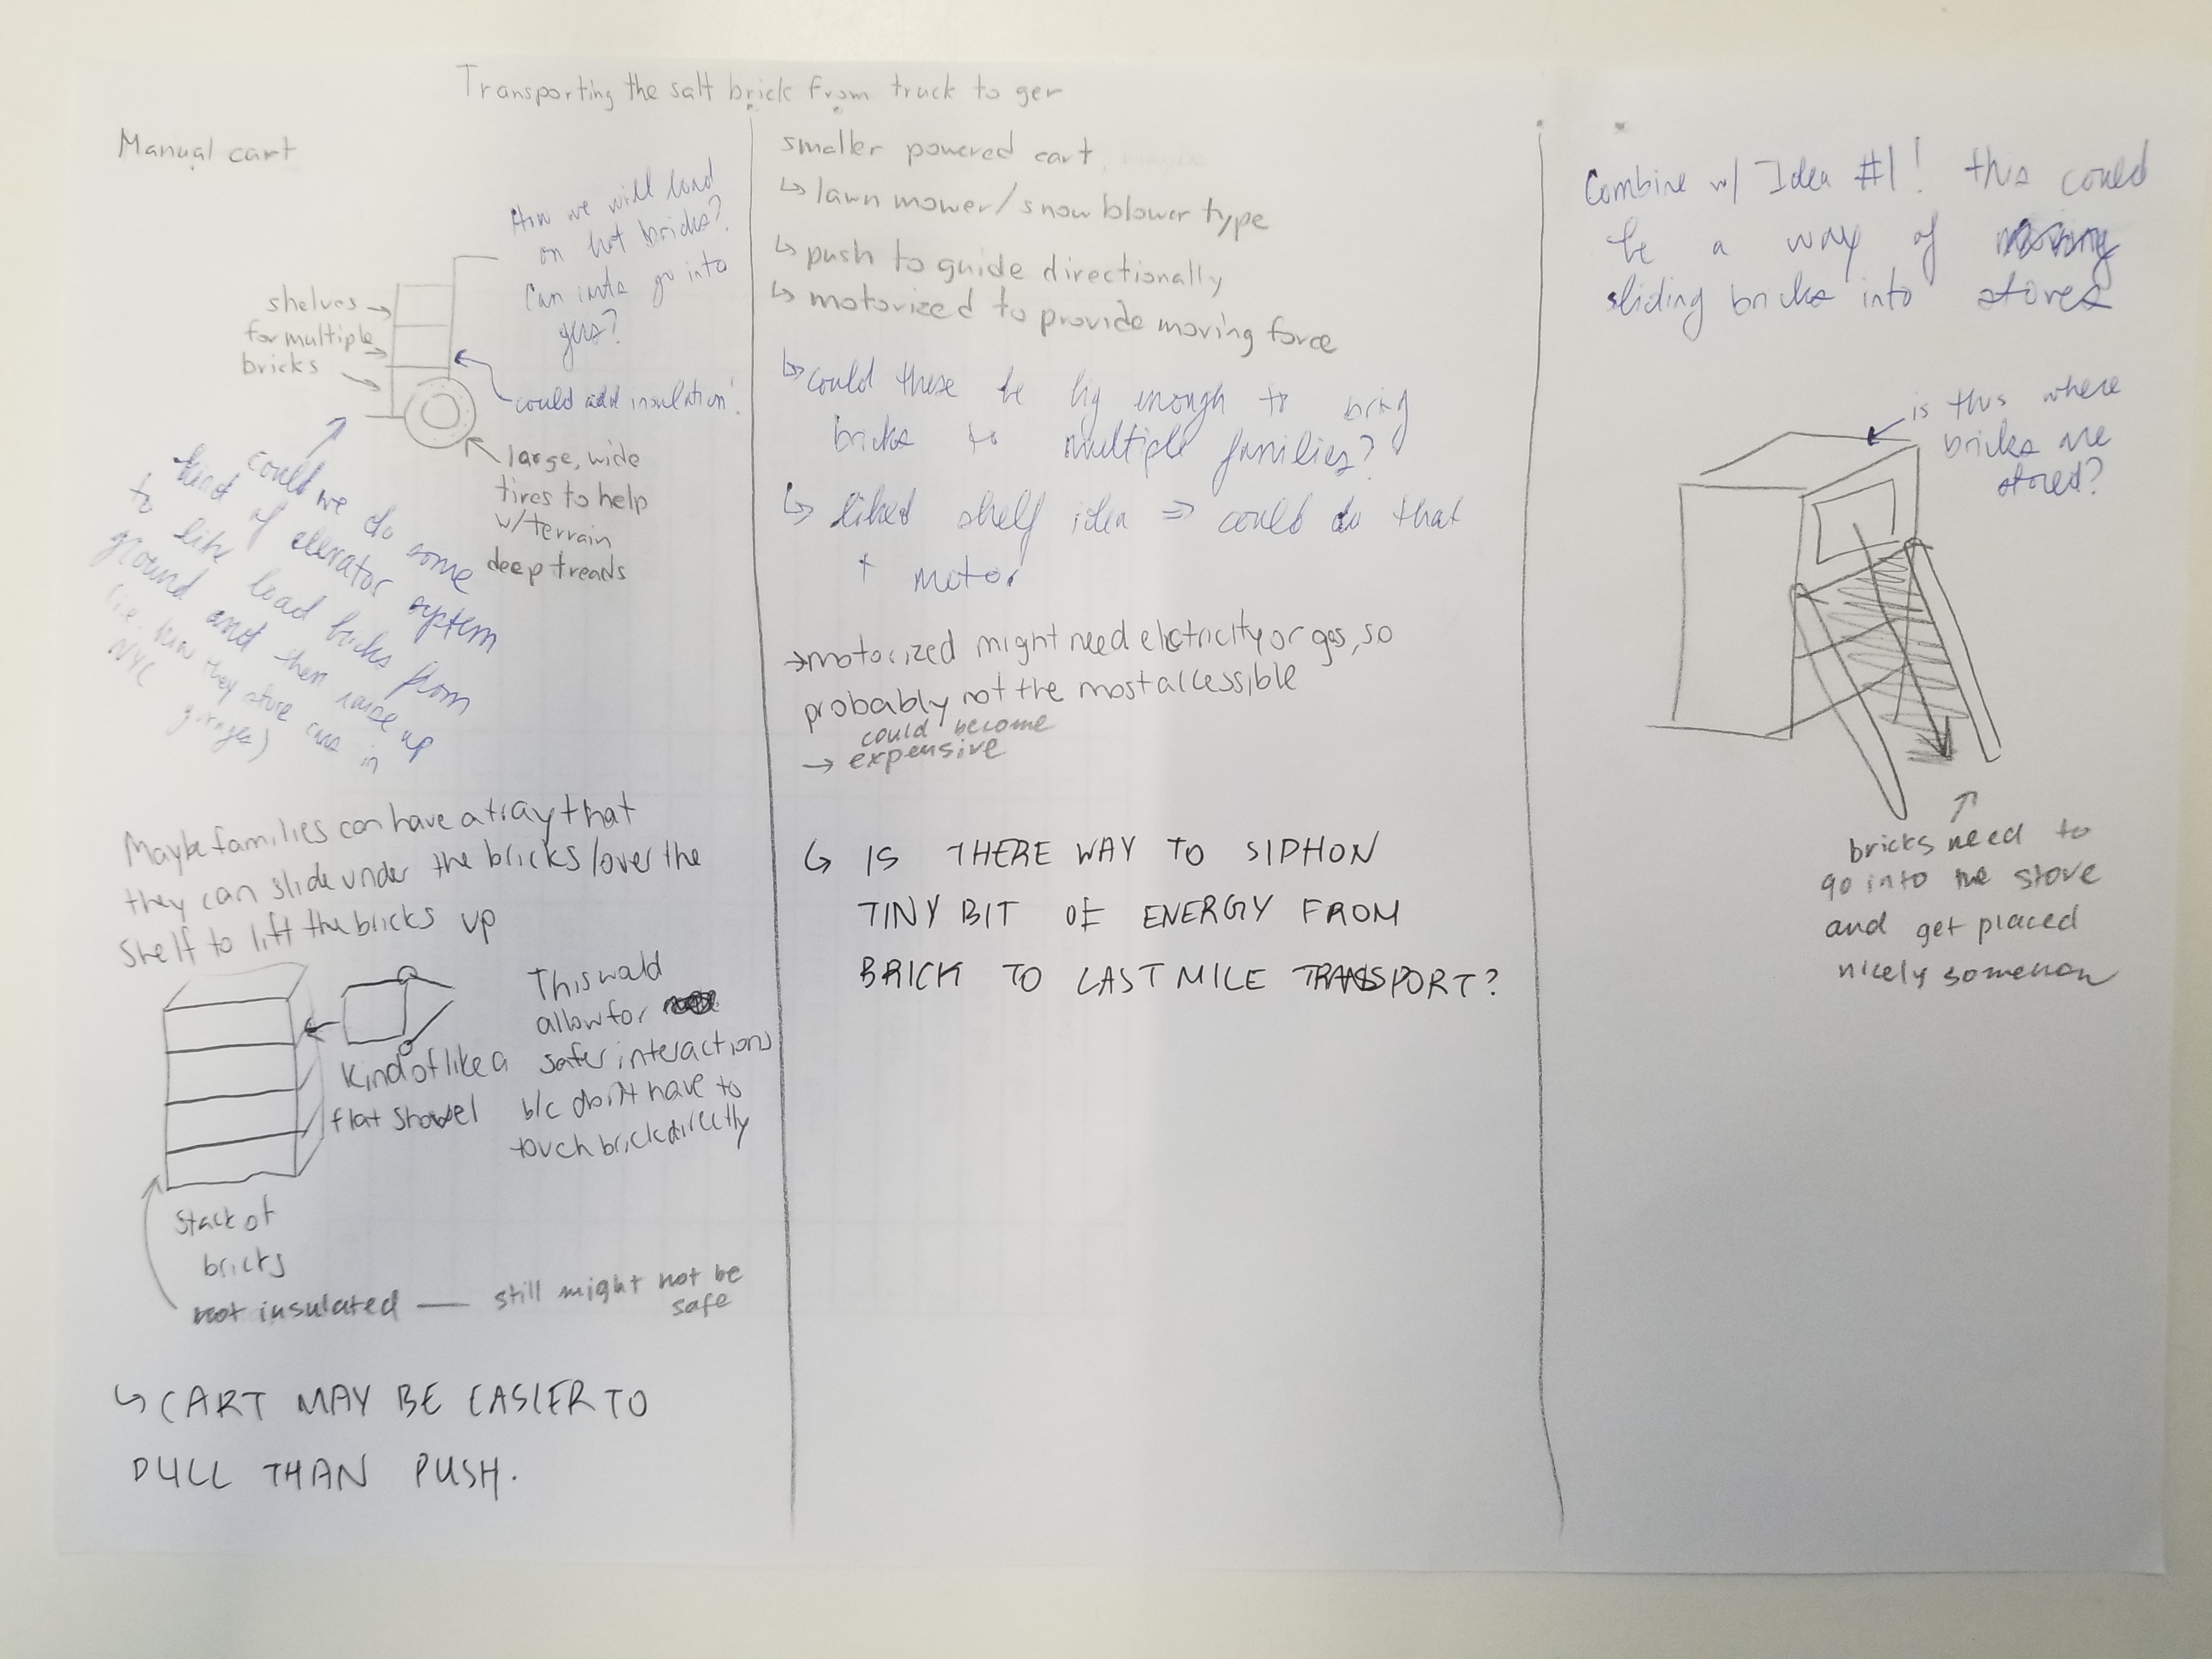 Transporting the salt brick from truck to ger
Manual cart
How we will load
on hot bricks?
Can carts go into
gers?
shelves
for multiple
bricks
could add insulation!
large, wide
tires to help
w/terrain
deep treads
could we do some
kind of elevator system
to like load bricks from
ground and then raise up
(i.e. how they store cars in
NYC garages)
Maybe families can have a tray that
they can slide under the bricks/over the
shelf to lift the bricks up
This would
allow for
safer interactions
b/c don't have to
touch brick directly
Kind of like a
flat shovel
Stack of
bricks
not insulated — still might not be
safe
↳ CART MAY BE EASIER TO
PULL THAN PUSH.
smaller powered cart
↳ lawn mower/snow blower type
↳ push to guide directionally
↳ motorized to provide moving force
↳ could these be big enough to bring
bricks to multiple families?
↳ liked shelf idea ⇒ could do that
+ motor
→ motorized might need electricity or gas, so
probably not the most accessible
could become
→ expensive
↳ IS THERE WAY TO SIPHON
TINY BIT OF ENERGY FROM
BRICK TO LAST MILE TRANSPORT?
Combine w/ Idea #1! this could
be a way of
sliding bricks into stoves
is this where
bricks are
stored?
bricks need to
go into the stove
and get placed
nicely somehow